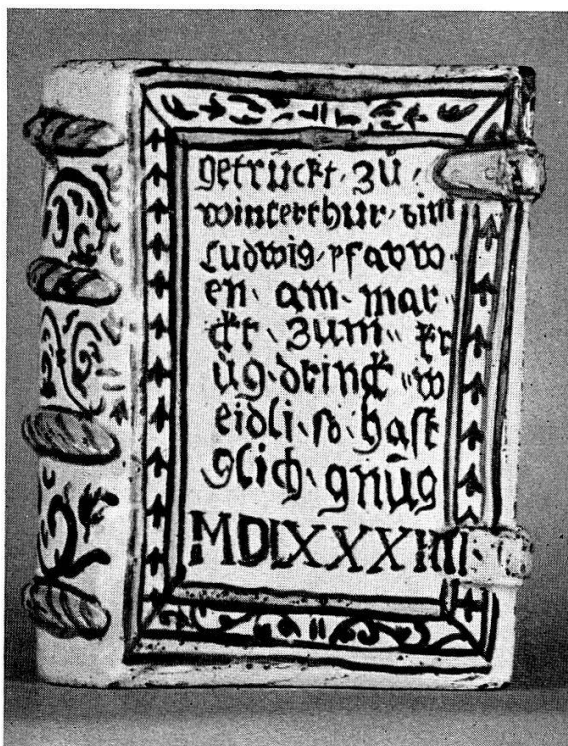 getrückt · zů ·
winterthur · bim
Ludwig · pfavw
en · am · mar
ckt · zum · kr
ůg · drinck · w
eidli · so · hast
glich · gnůg
MDLXXXIIII